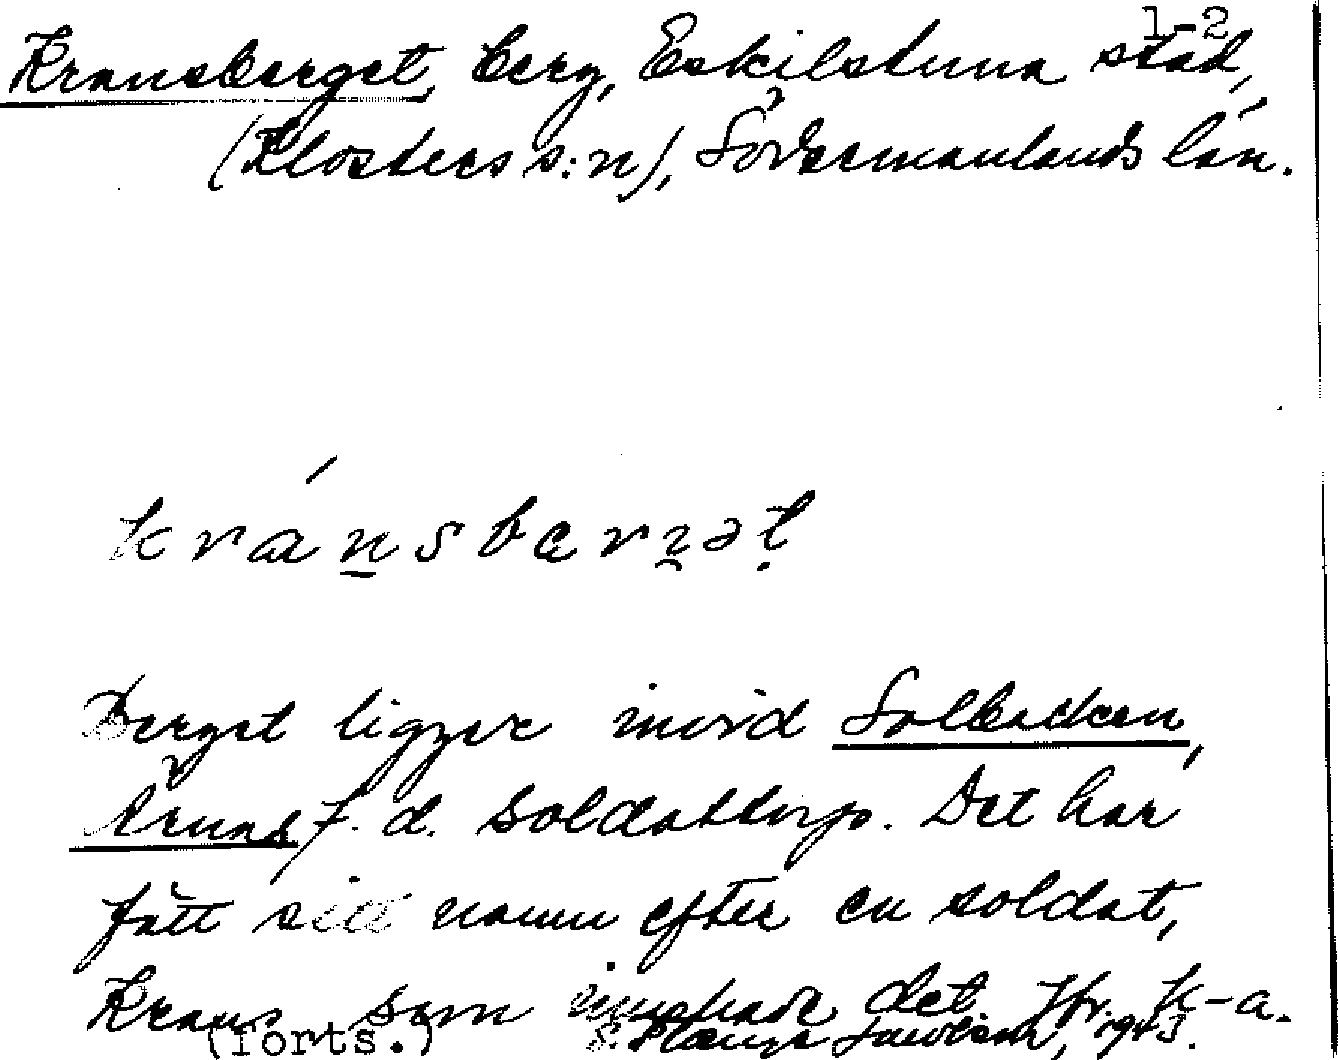 1-2
Kransberget, berg, Eskilstuna stad,
(Klosters s:n), Södermanlands län.
kránsbærgət
Berget ligger invid Solbacken,
f.d. soldattorp. Det har
fått sitt namn efter en soldat,
Krans som innehade det. Jfr. k-a.
(forts.) 1943.